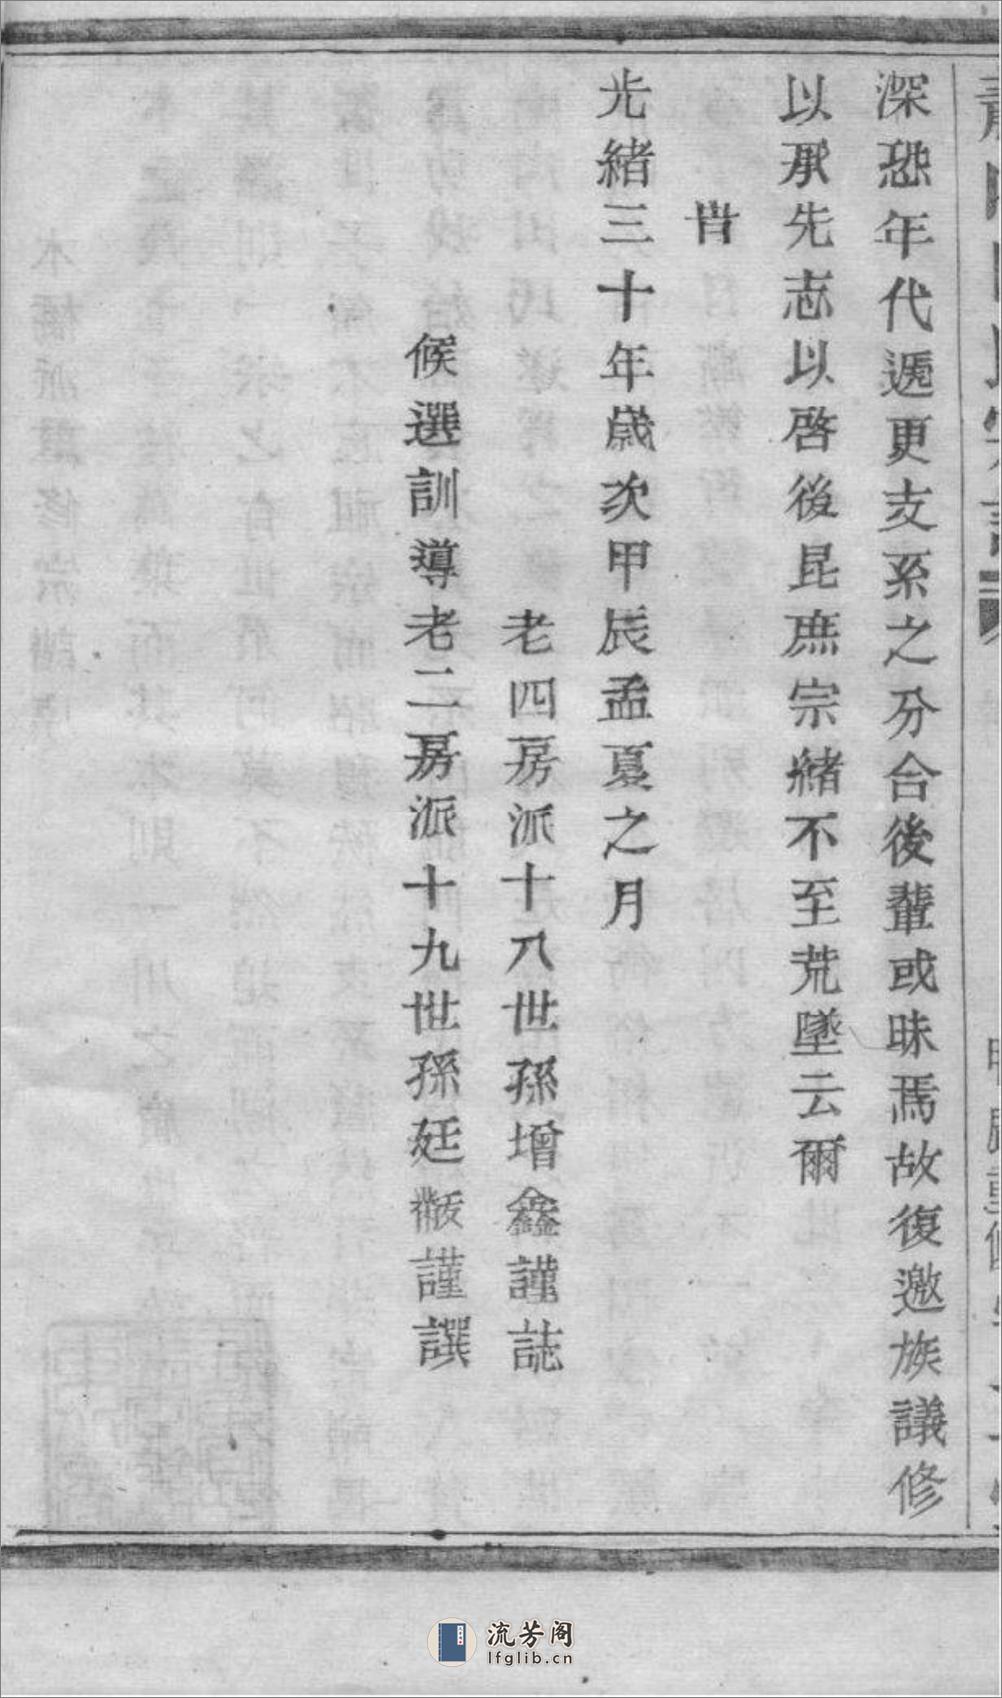 深恐年代遞更支系之分合後輩或昧焉故復邀族議修
以承先志以啓後昆庶宗緒不至荒墜云爾
旹
光緒三十年歲次甲辰孟夏之月
老四房派十八世孫增鑫謹誌
候選訓導老二房派十九世孫廷黻謹譔
流芳阁
lfglib.cn